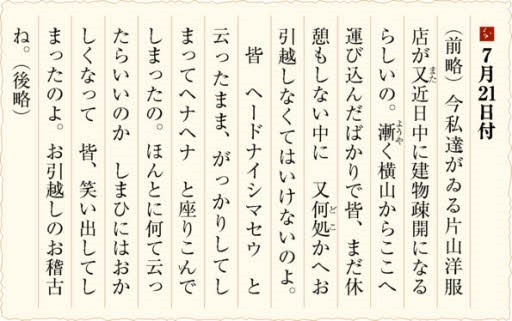 い 7月21日付
（前略）今私達がゐる片山洋服
店が又近日中に建物疎開になる
らしいの。漸く横山からここへ
運び込んだばかりで皆、まだ休
憩もしない中に 又何処かへお
引越しなくてはいけないのよ。
皆 ヘードナイシマセウ と
云ったまま、がっかりしてし
まってヘナヘナ と座りこんで
しまったの。ほんとに何て云っ
たらいいのか しまひにはおか
しくなって 皆、笑い出してし
まったのよ。お引越しのお稽古
ね。（後略）